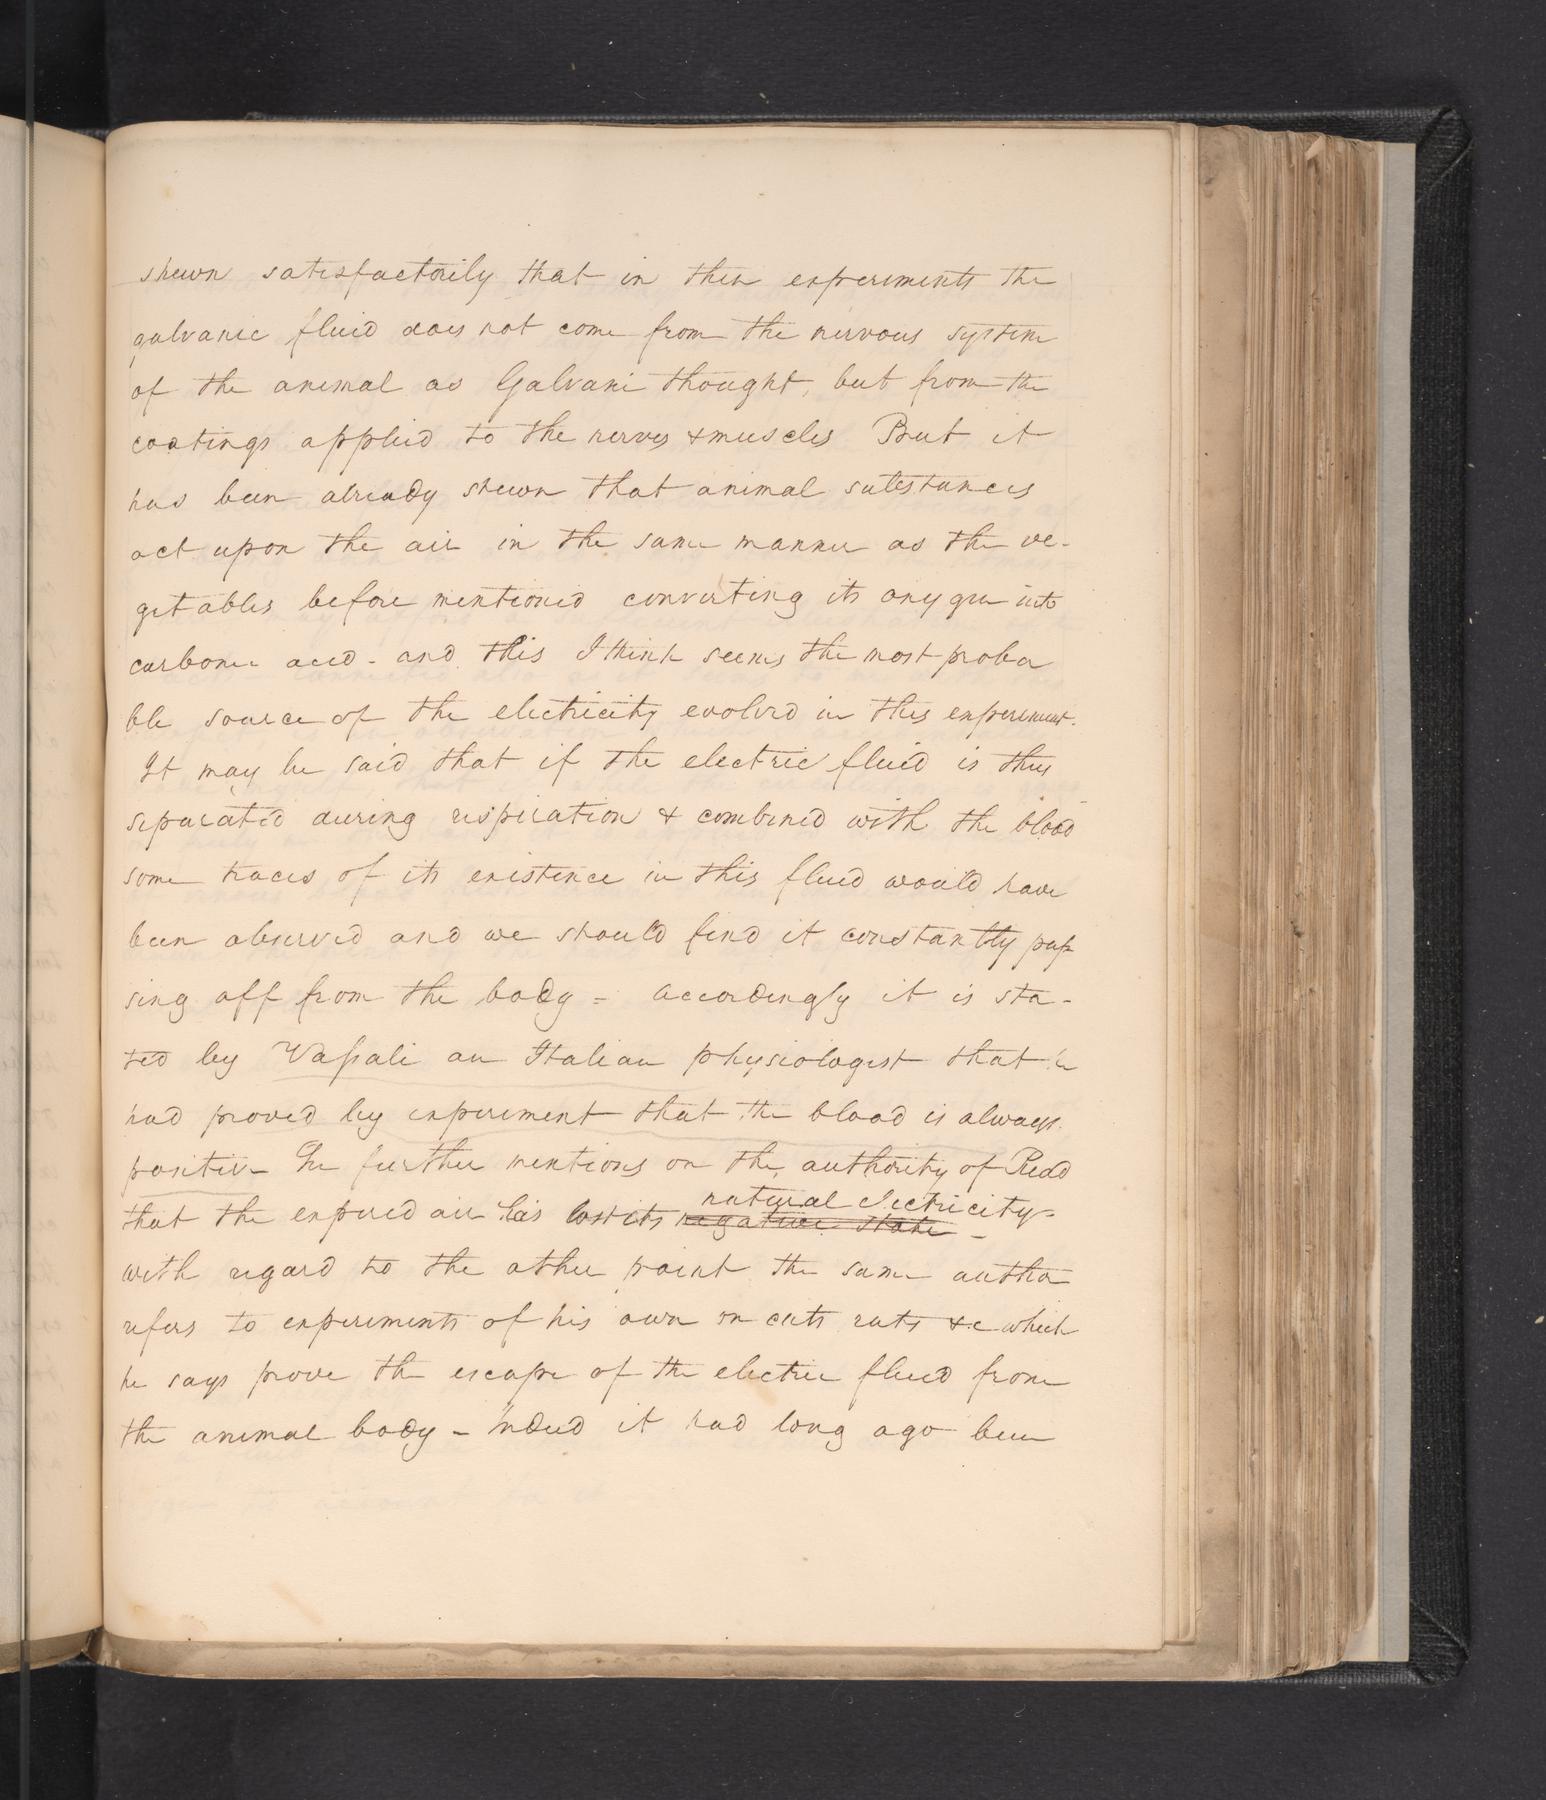 shewn satisfactorily that in these experiments the
galvanic fluid does not come from the nervous system
of the animal as Galvani thought, but from the
coatings applied to the nerves & muscles But it
has been already shewn that animal substances
act upon the air in the same manner as the ve-
getables before mentioned converting its oxygen into
carbonic acid - and this I think seems the most proba
ble source of the electricity evolved in this experiment.
It may be said that if the electric fluid is thus
separated during respiration & combined with the blood
some traces of its existence in this fluid would have
been observed and we should find it constantly pas
sing off from the body = accordingly it is sta-
ted by Vassali an Italian physiologist that he
had proved by experiment that the blood is always
positive He further mentions on the authority of Read
natural electricity -
that the expired air has lost its negative state -
with regard to the other point the same author
refers to experiments of his own on cats rats &c which
he says prove the escape of the electric fluid from
the animal body - Indeed it had long ago been